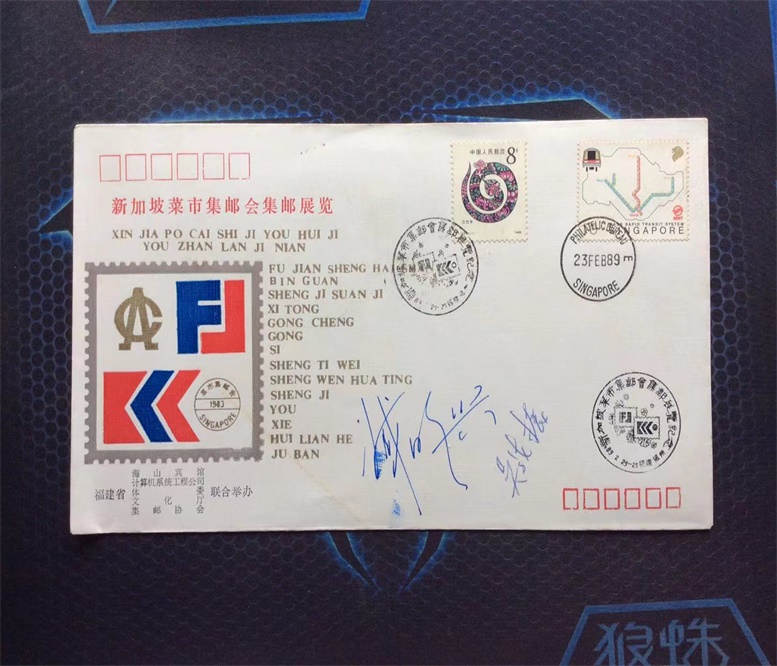 中国人民邮政
8分
新加坡菜市集邮会集邮展览
XIN JIA PO CAI SHI JI YOU HUI JI
YOU ZHAN LAN JI NIAN
RAPID TRANSIT SYSTEM
SINGAPORE
PHILATELIC BUREAU E
23FEB89
SINGAPORE
FU JIAN SHENG HAI
BIN GUAN
SHENG JI SUAN JI
XI TONG
GONG CHENG
GONG
SI
SHENG TI WEI
SHENG WEN HUA TING
SHENG JI
YOU
XIE
HUI LIAN HE
JU BAN
菜市集邮会
1983
SINGAPORE
福建省
海山宾馆
计算机系统工程公司
体委
文化厅
集邮协会
联合举办
狼蛛